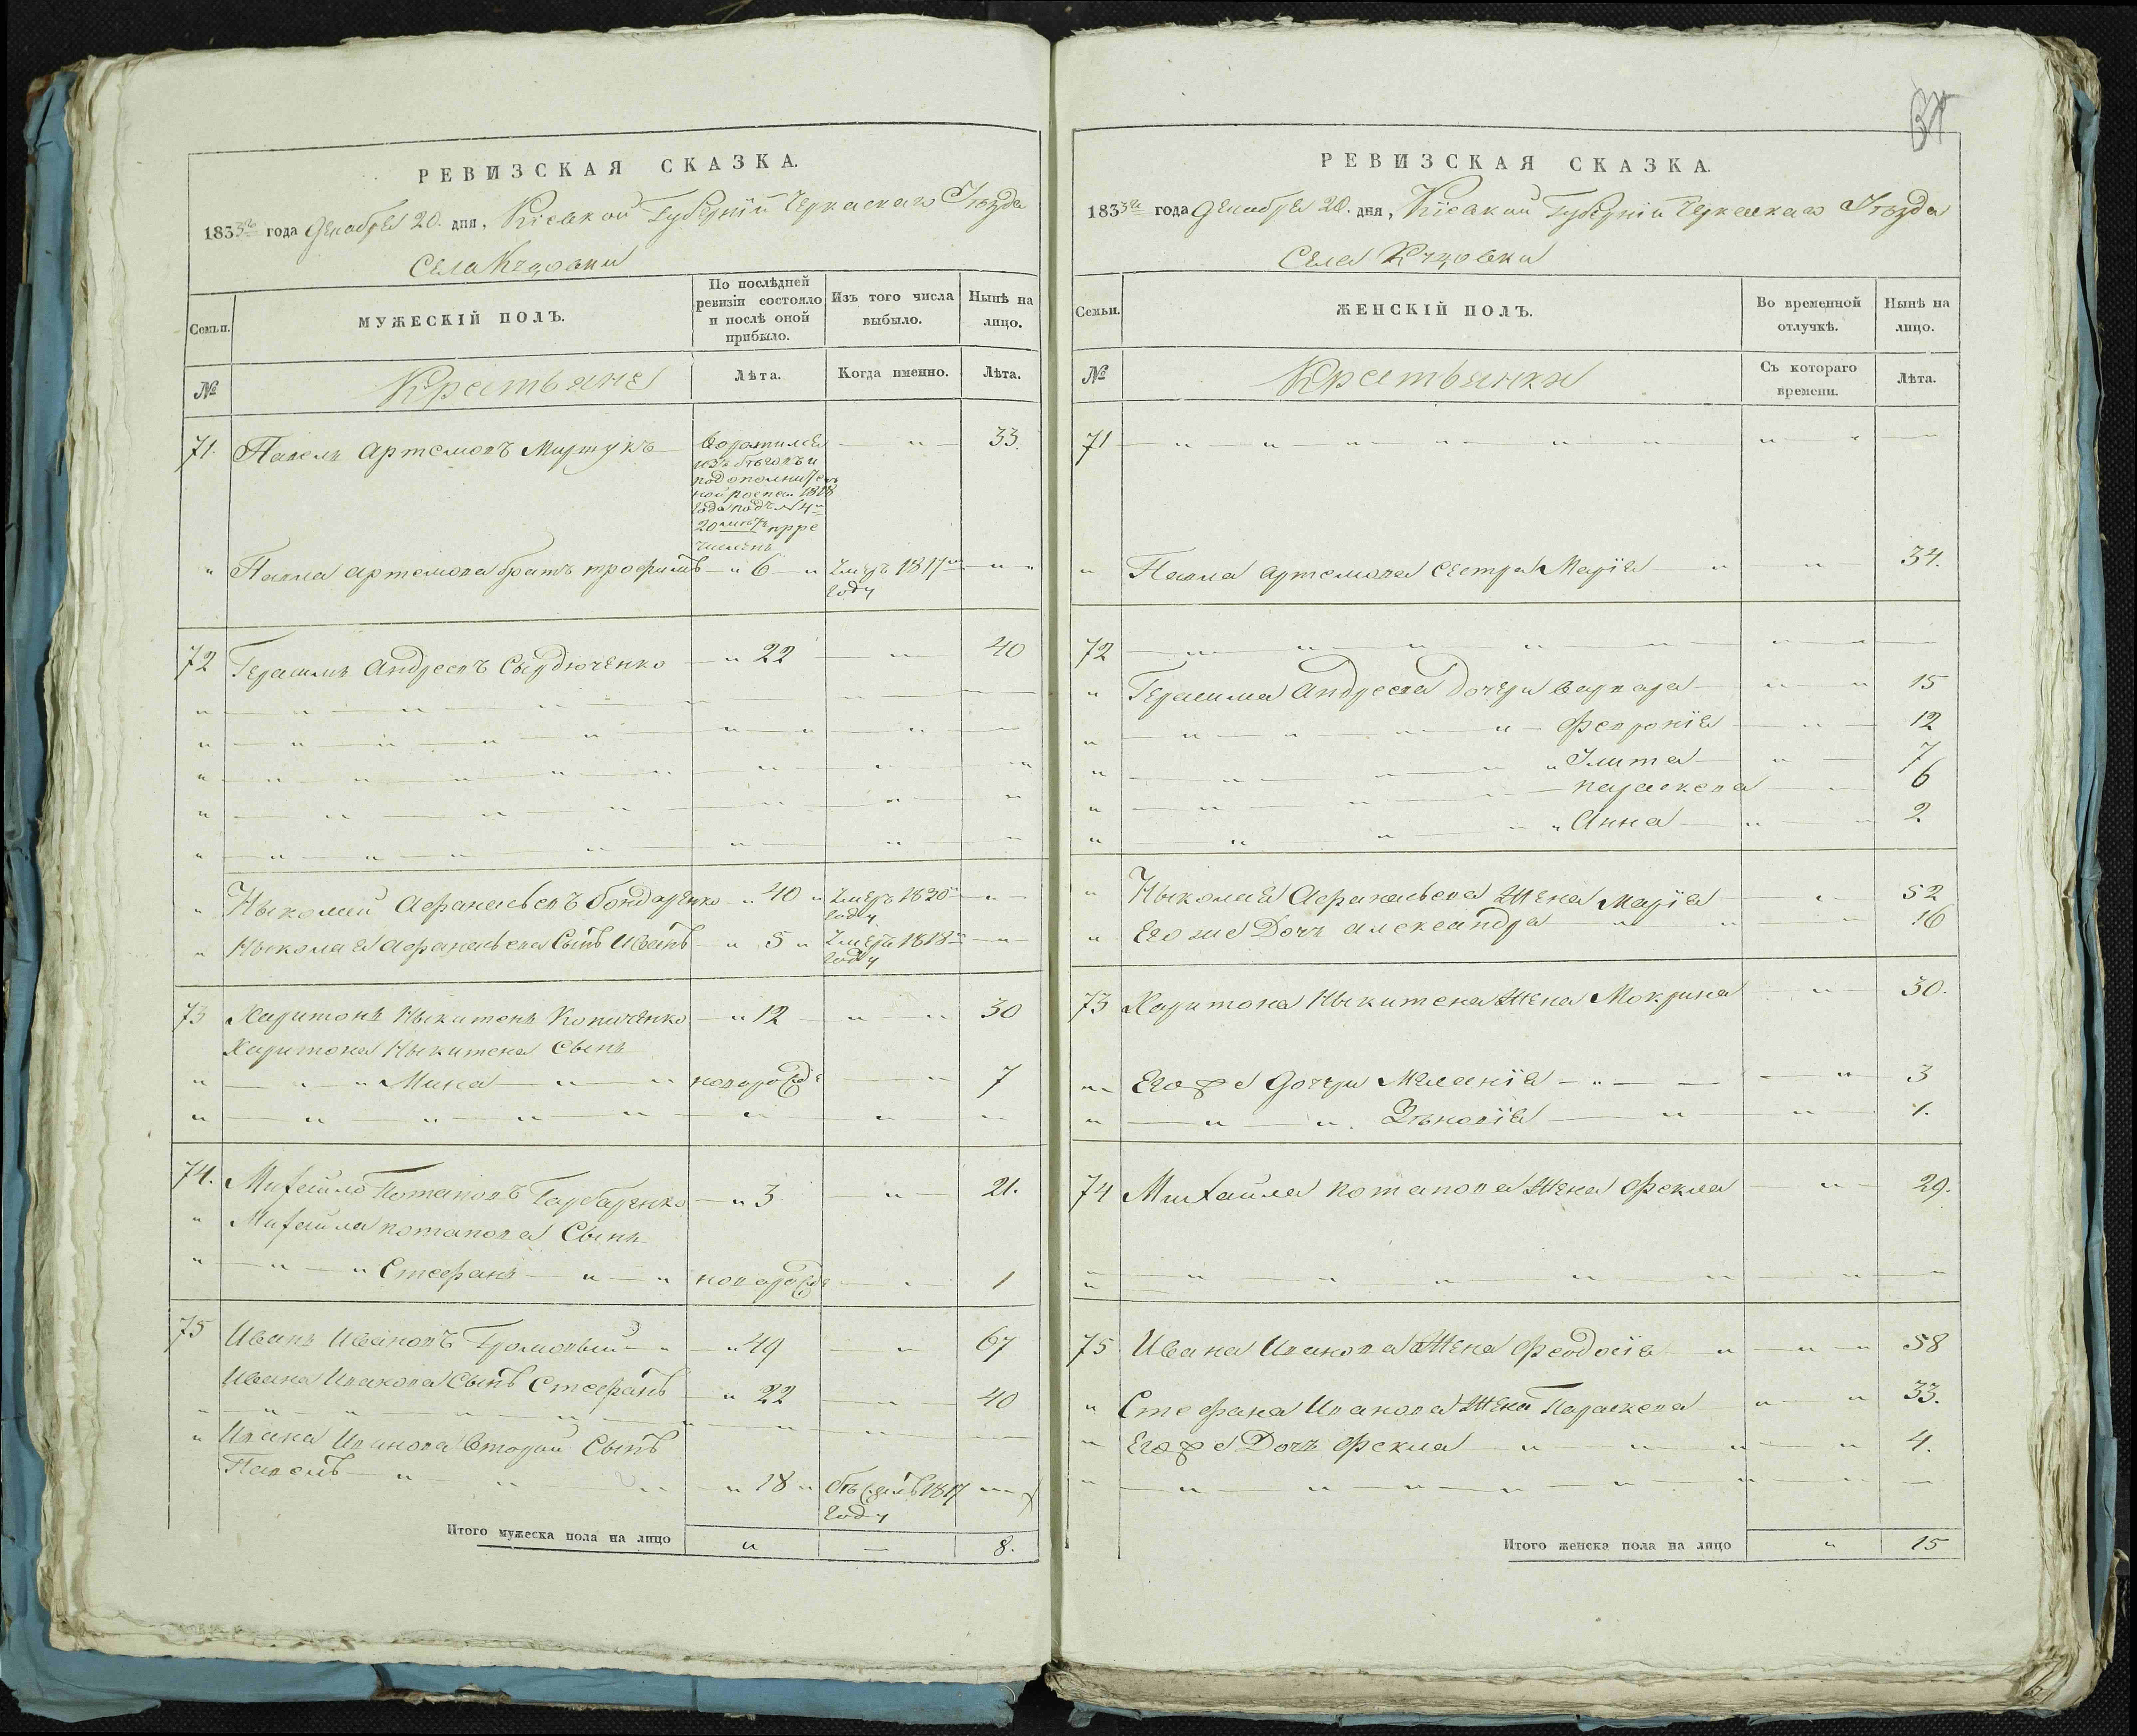 РЕВИЗСКАЯ СКАЗКА.
1833го года Декабря 20. дня, Кіевской Губерніи Черкаскаго Уѣзда
Села
Семьи.
МУЖЕСКІЙ ПОЛЪ.
По послѣдней ревизіи состояло и послѣ оной прибыло.
Изъ того числа выбыло.
Нынѣ на лицо.
№
Крестьяне
Лѣта.
Когда именно.
Лѣта.
71. Павелъ Артемовъ 33.
Воротился
изъ бѣговъ и
по дополнител
ной 1818
года подъ №4м
20 причисленъ
" Павла Артемова братъ трофимъ " 6 " Умеръ 1817го году
72 Герасимъ Андреевъ Сырдюченко " 22 " 40
" Ныколай Афанасьевъ бондаренко " 40 " Умеръ 1820го году
" Ныколая Афанасьева Сынъ Иванъ " 5 " Умеръ 1818го году
73 Харитонъ Ныкитевъ Копиченко " 12 " 30
Харитона Ныкитена Сынъ
" " " Мина " новорожде " 7
74. Михайло Потаповъ Гарбаренко " 3 " 21.
" Михайла потапова Сынъ
" " " Стефанъ " " новорожде " 1
75 Иванъ Ивановъ Громовый " " 49 " 67
Ивана Иванова Сынъ Стефанъ " 22 40
" Ивана Иванова второй Сынъ
Павелъ " " 18 " бѣжалъ 1817 году
Итого мужеска пола на лицо " — 8.
РЕВИЗСКАЯ СКАЗКА.
1833го года Декабря 20. дня, Кіевской Губерніи Черкаскаго Уѣзда
Села
Семьи.
ЖЕНСКІЙ ПОЛЪ.
Во временной отлучкѣ.
Нынѣ на лицо.
№
Крестьянки
Съ котораго времени.
Лѣта.
71
" Павла Артемова Сестра Марія " " 34.
72
" Герасима Андреева Дочери варвара " " 15
" " Февронія " 12
" " Улита " 7
" параскева 6
" " Анна " 2
" Ныколая Афанасьева Жена Марія " 52
" Его же Дочь александра " " 16
73 Харитона Ныкитена Жена Мокрина " 30.
" Егоже Дочери Меланія " " 3
" " " Зѣновія " " 1.
74 Михайла потапова Жена Фекла " 29.
75 Ивана Иванова Жена Феодосія " " " 58
" Стефана Иванова Жена Параскева " " 33.
" Егоже Дочь Фекла " " " " 4.
Итого женска пола на лицо " 15